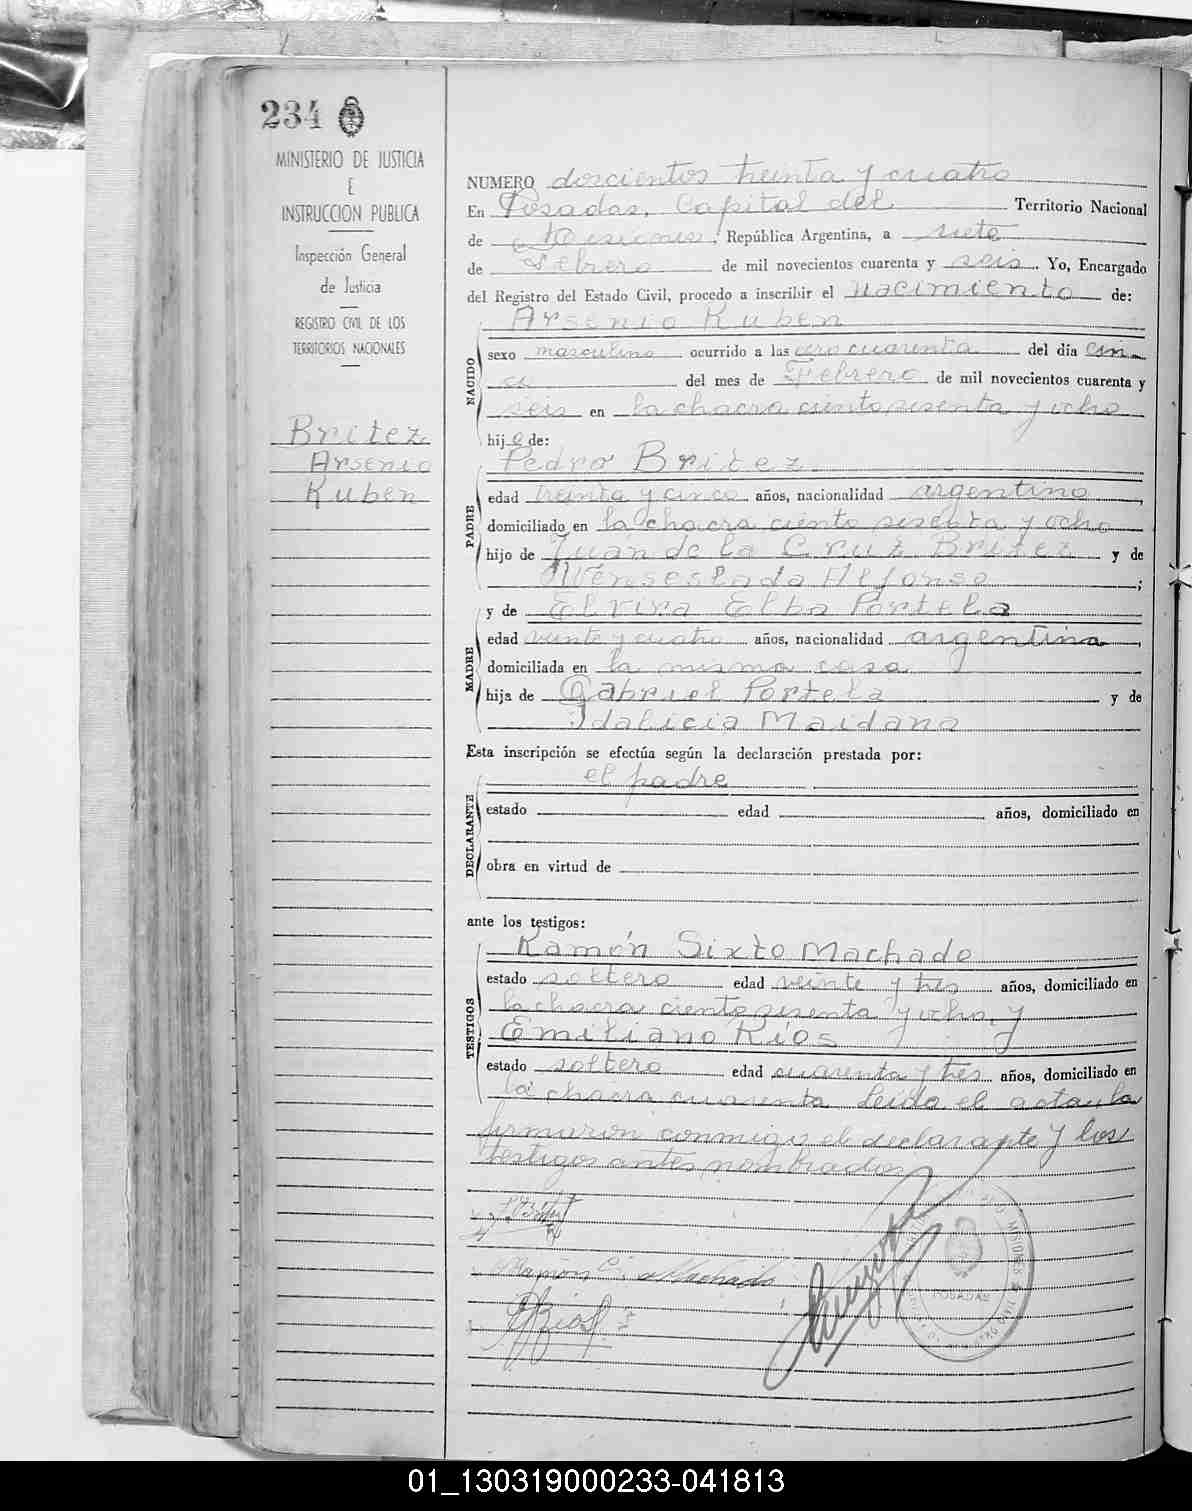 234
MINISTERIO DE JUSTICIA
E
INSTRUCCION PUBLICA
Inspección General
de Justicia
REGISTRO CIVIL DE LOS
TERRITORIOS NACIONALES
Britez
Arsenio
Ruben
NUMERO doscientos treinta y cuatro
En Posadas, Capital del Territorio Nacional
de Misiones, República Argentina, a siete
de Febrero de mil novecientos cuarenta y seis. Yo, Encargado
del Registro del Estado Civil, procedo a inscribir el nacimiento de:
NACIDO
Arsenio Ruben
sexo masculino ocurrido a las cero cuarenta del día cin
co del mes de Febrero de mil novecientos cuarenta y
seis en la chacra ciento sesenta y ocho
hijo de:
PADRE
Pedro Britez
edad treinta y cinco años, nacionalidad argentino,
domiciliado en la chacra ciento sesenta y ocho
hijo de Juan de la Cruz Britez y de
Wenseslada Alfonso;
MADRE
y de Elvira Elba Portela
edad veinte y cuatro años, nacionalidad argentina,
domiciliada en la misma casa
hija de Gabriel Portela y de
Idalicia Maidana
Esta inscripción se efectúa según la declaración prestada por:
DECLARANTE
el padre
estado edad años, domiciliado en
obra en virtud de
ante los testigos:
TESTIGOS
Ramón Sixto Machado
estado soltero edad veinte y tres años, domiciliado en
la chacra ciento sesenta y ocho, y
Emiliano Ríos
estado soltero edad cuarenta y tres años, domiciliado en
la chacra cuarenta Leida el acta la
firmaron conmigo el declarante y los
testigos antes nombrados
Ramón S. Machado
POSADAS
01_130319000233-041813